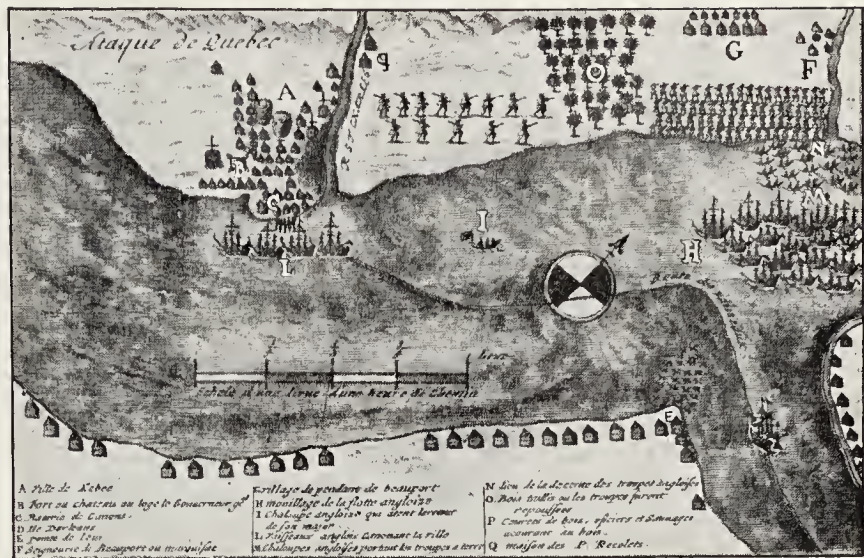 Ataque de Quebec
A
B
C
F
G
H
I
L
M
N
O
E
q
A Ville de Kebec
B Fort ou chateau ou loge le Gouverneur gñl
C Baterie de Canons
D Ile Dorleans
E pointe de levi
F Seigneurie de Beauport ou marquisat
G village de pendant de beauport
H mouillage de la flotte angloise
I Chaloupe angloise qui
de son major
L Vaisseaux anglois Canonant la ville
M Chaloupes angloises portant les troupes a terre
N lieu de la decente des troupes Angloises
O Bois taillis ou les troupes furent
repoussées
P Coureurs de bois, oficiers et Sauvages
acourant au bois
Q maison des P. Recolets